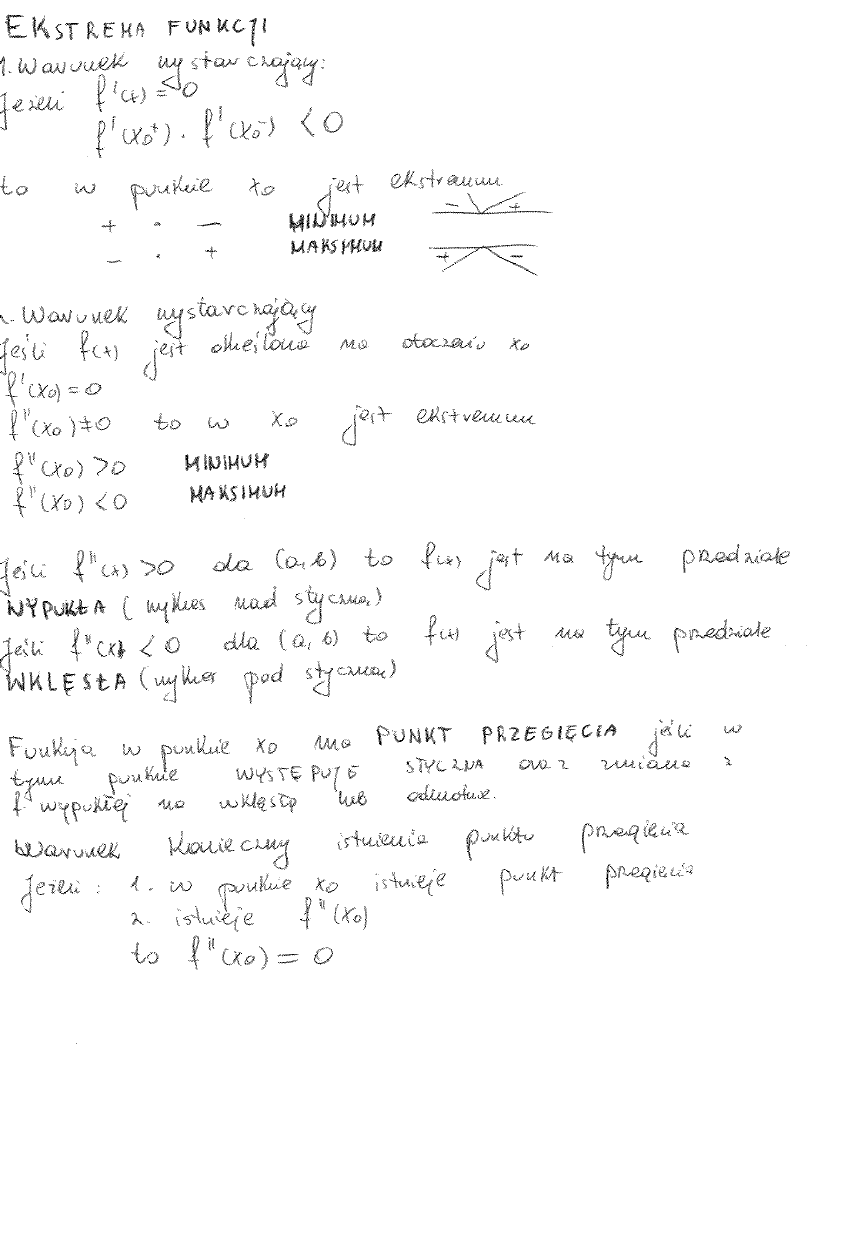 EKSTREMA FUNKCJI
1. Warunek wystarczający:
Jeżeli f'(x) = 0
f'(x₀⁺) . f'(x₀⁻) < 0
to w punkcie x₀ jest ekstremum
+ . — MINIMUM − +
− . + MAKSIMUM + −
2. Warunek wystarczający
Jeśli f(x) jest określona na otoczeniu x₀
f'(x₀) = 0
f''(x₀) ≠ 0 to w x₀ jest ekstremum
f''(x₀) > 0 MINIMUM
f''(x₀) < 0 MAKSIMUM
Jeśli f''(x) > 0 dla (a, b) to f(x) jest na tym przedziale
WYPUKŁA (wykres nad styczną)
Jeśli f''(x) < 0 dla (a, b) to f(x) jest na tym przedziale
WKLĘSŁA (wykres pod styczną)
Funkcja w punkcie x₀ ma PUNKT PRZEGIĘCIA jeśli w
tym punkcie WYSTĘPUJE STYCZNA oraz zmiana z
f wypukłej na wklęsłą lub odwrotnie.
Warunek Konieczny istnienia punktu przegięcia
Jeżeli : 1. w punkcie x₀ istnieje punkt przegięcia
2. istnieje f''(x₀)
to f''(x₀) = 0